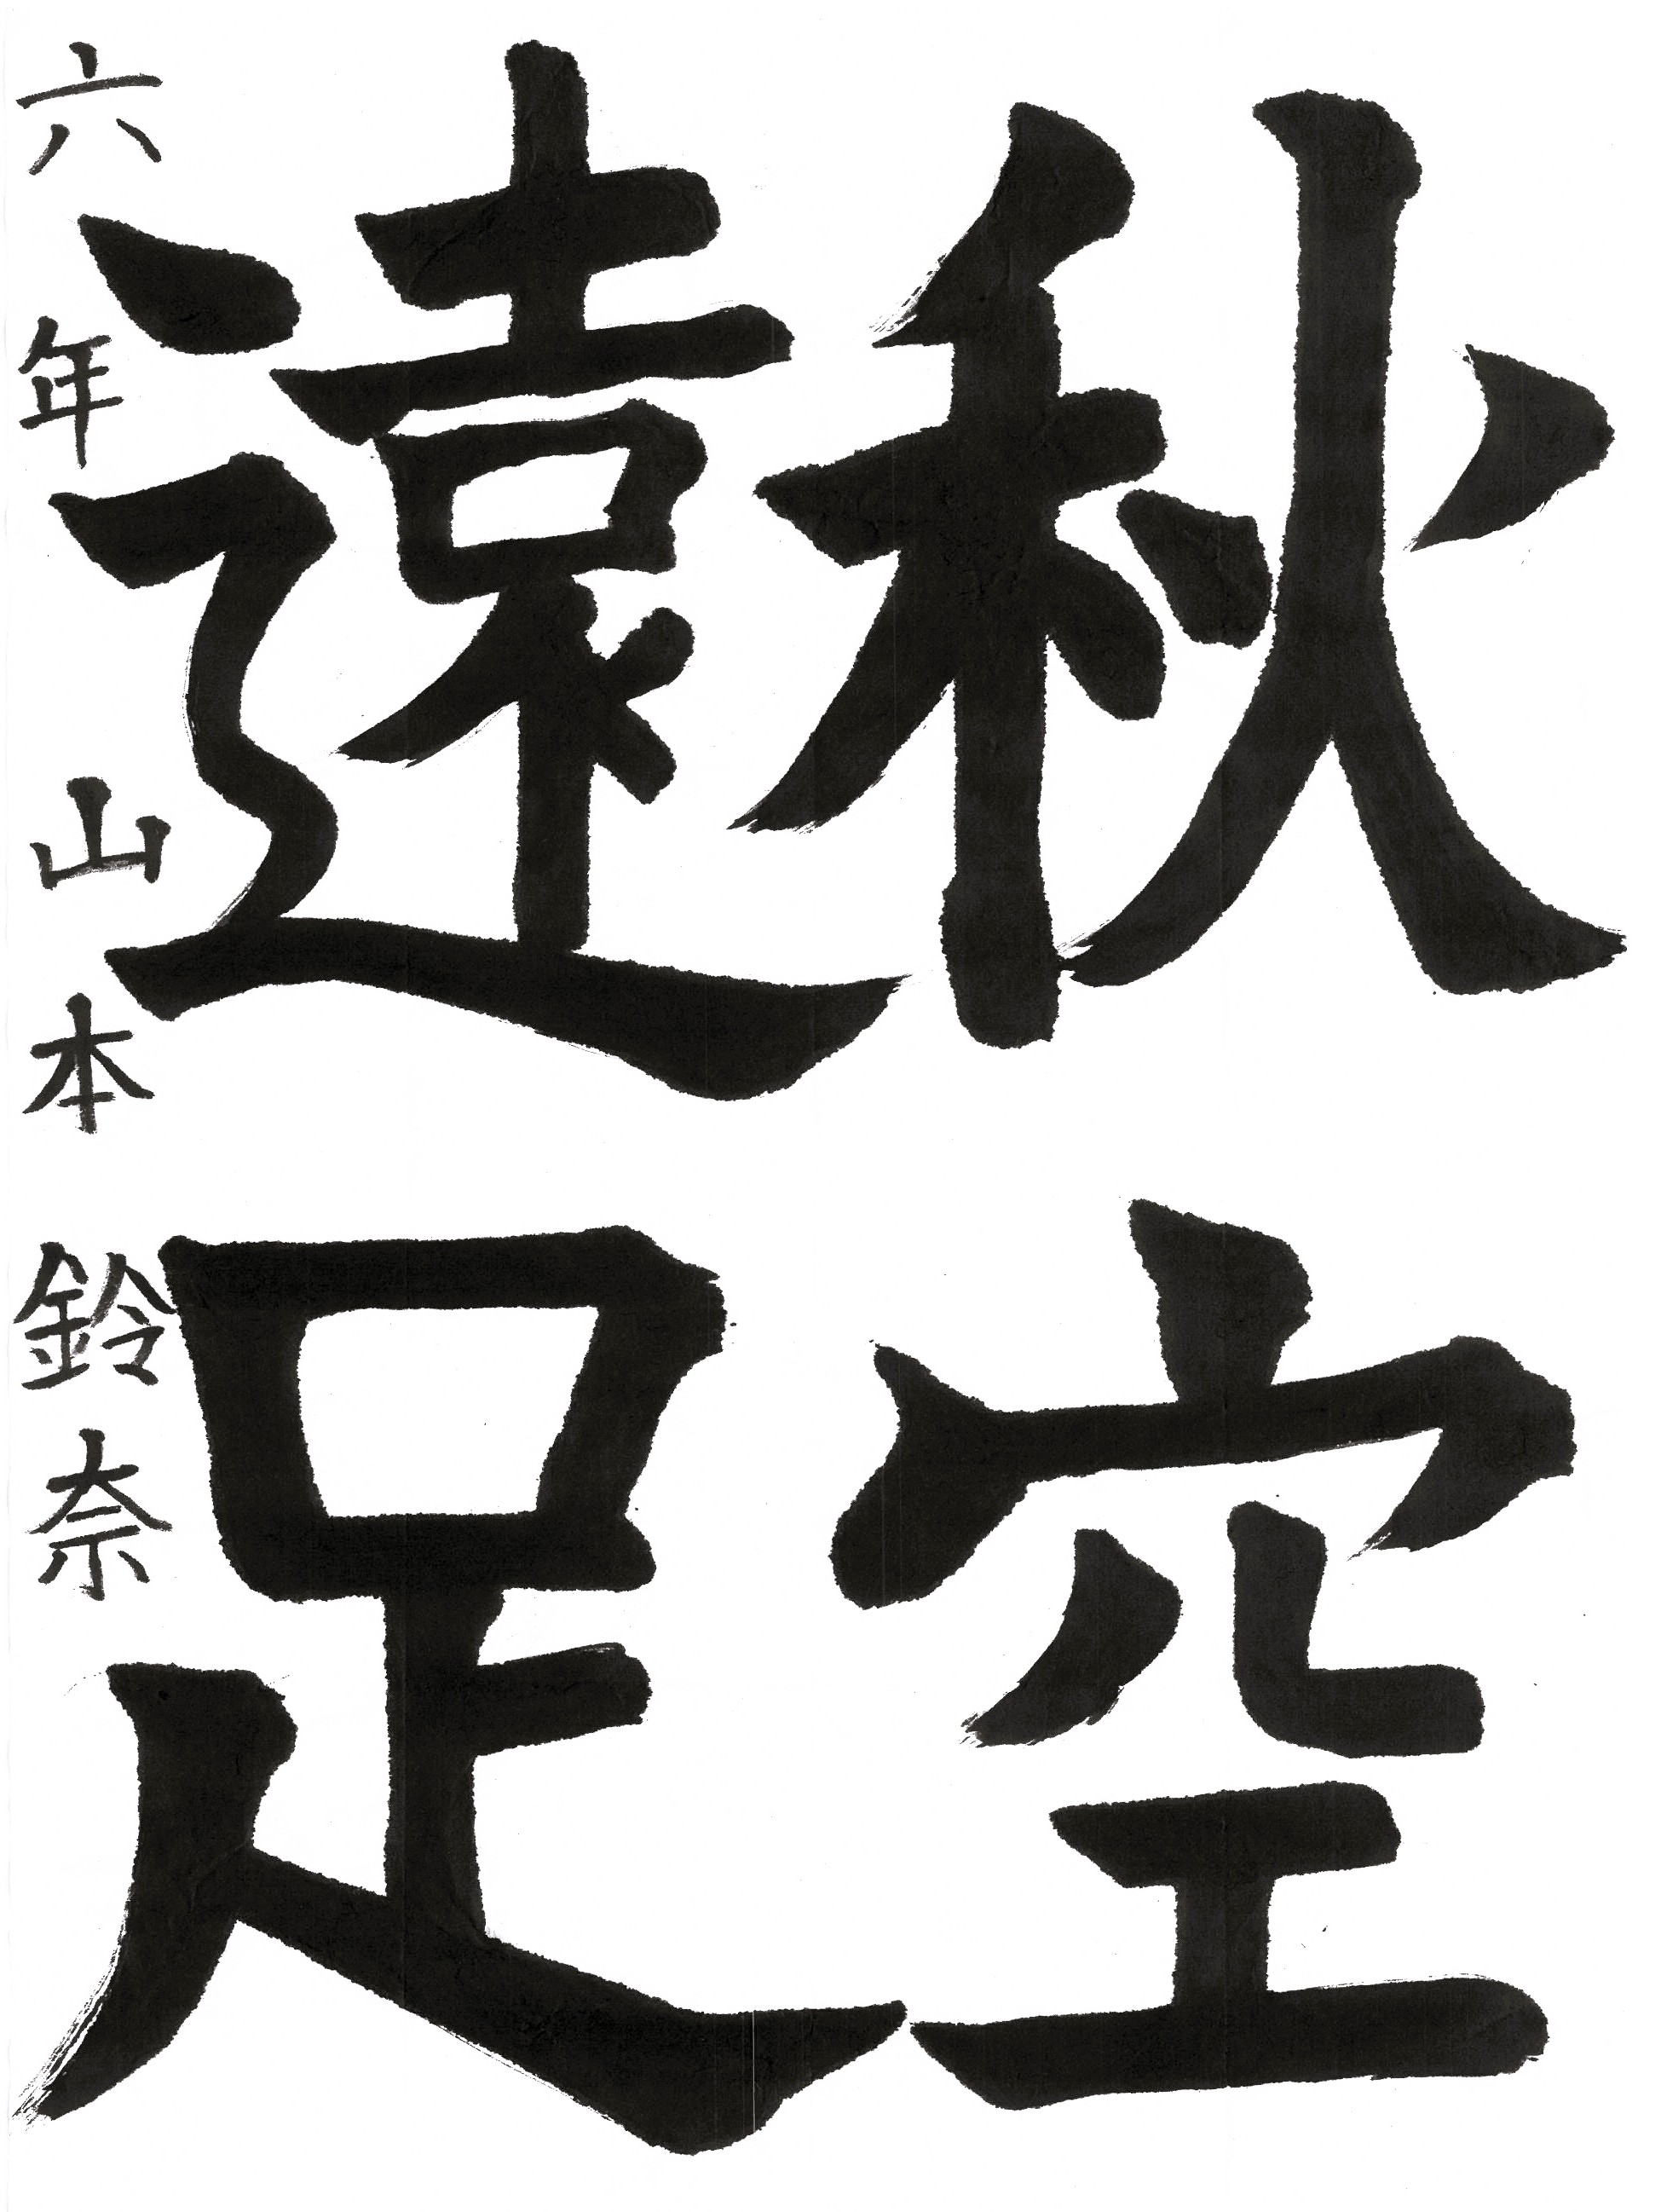 秋空
遠足
六年 山本 鈴奈